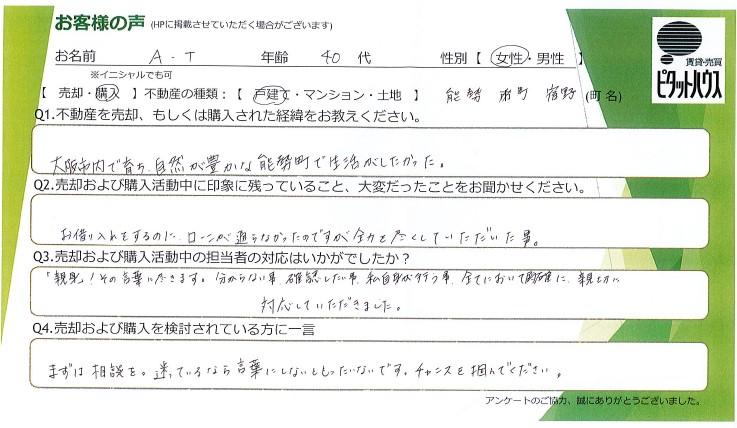 お客様の声 (HPに掲載させていただく場合がございます)
賃貸・売買
ピタットハウス
お名前 A・T 年齢 40 代 性別【 女性・男性 】
※イニシャルでも可
【 売却・購入 】不動産の種類：【 戸建て・マンション・土地 】 能勢 町 宿野 (町名)
Q1.不動産を売却、もしくは購入された経緯をお教えください。
大阪市内で育ち、自然が豊かな能勢町で生活がしたかった。
Q2.売却および購入活動中に印象に残っていること、大変だったことをお聞かせください。
お借り入れをするのに、ローンが通らなかったのですが全力を尽くしていただいた事。
Q3.売却および購入活動中の担当者の対応はいかがでしたか？
「親身」！その言葉につきます。分からない事、確認したい事、私自身が行う事、全てにおいて明確に、親切に
対応していただきました。
Q4.売却および購入を検討されている方に一言
まずは相談を。迷っているなら言葉にしないともったいないです。チャンスを掴んでください。
アンケートのご協力、誠にありがとうございました。